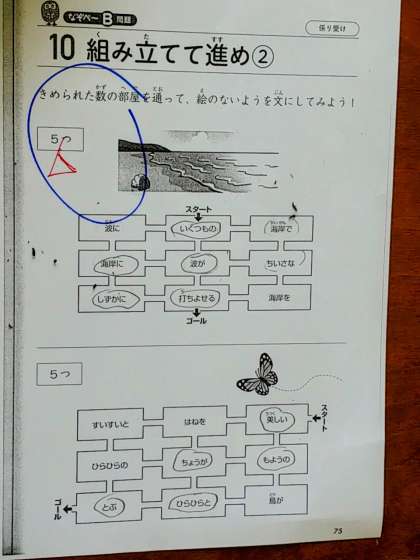 なぞペー B 問題
係り受け
10 組み立てて進め②
きめられた数の部屋を通って、絵のないようを文にしてみよう！
5つ
スタート
波に いくつもの 海岸で
海岸に 波が ちいさな
しずかに 打ちよせる 海岸を
ゴール
5つ
すいすいと はねを 美しい スタート
ひらひらの ちょうが もようの
ゴール とぶ ひらひらと 鳥が
75